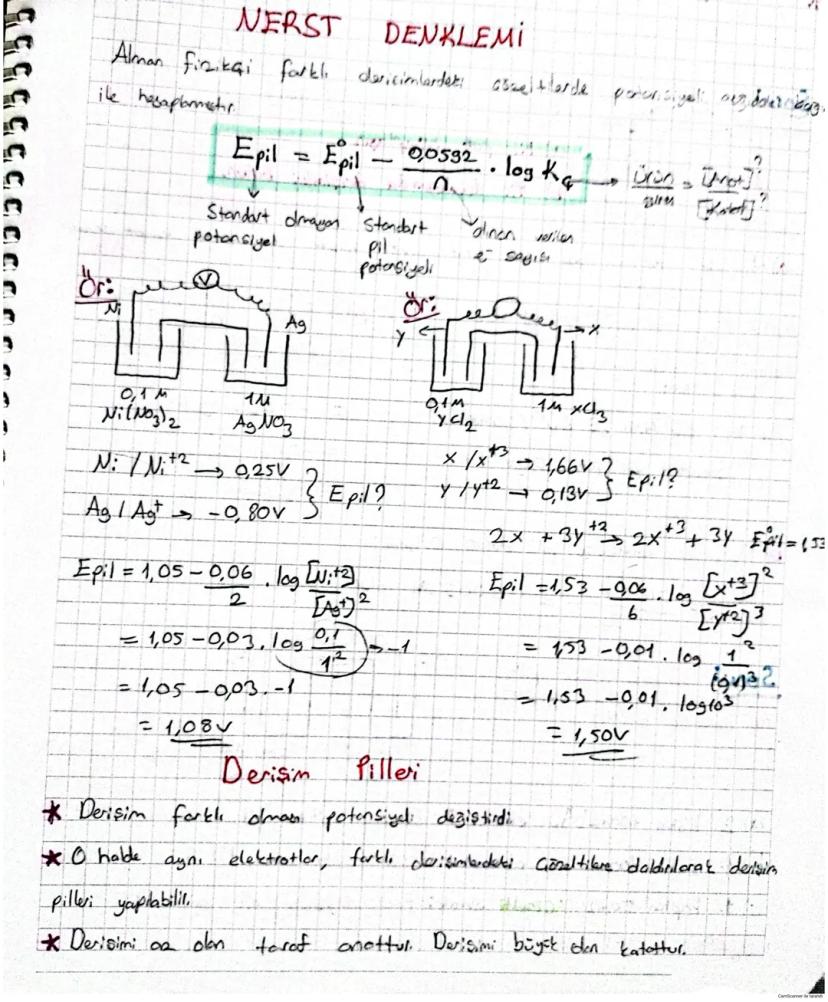 NERST DENKLEMİ
Alman fizikçi farklı derişimlerdeki çözeltilerde potansiyeli
ile hesaplamıştır.
Epil = E°pil − 0,0592/n · log Kç → Ürün/ = [Anot]?/[Katot]?
Standart olmayan potansiyel
Standart pil potansiyeli
alınan verilen e- sayısı
Ör:
V
Ni
Ag
0,1 M
Ni(NO3)2
1M
AgNO3
Ör:
Y
X
0,1M
YCl2
1M XCl3
Ni / Ni+2 → 0,25V
Ag / Ag+ → -0,80V
} Epil?
X / X+3 → 1,66V
Y / Y+2 → 0,13V
} Epil?
2X + 3Y+2 → 2X+3 + 3Y E°pil = 1,53
Epil = 1,05 − 0,06/2 . log [Ni+2]/[Ag+]2
= 1,05 − 0,03 . log 0,1/1² → -1
= 1,05 − 0,03 . -1
= 1,08V
Epil = 1,53 − 0,06/6 . log [X+3]2/[Y+2]3
= 1,53 − 0,01 . log 1²/(0,1)³
= 1,53 − 0,01 . log10³
= 1,50V
Derişim Pilleri
* Derişim farklı olması potansiyeli değiştirdi.
* O halde aynı elektrotlar, farklı derişimlerdeki çözeltilere daldırılarak derişim
pilleri yapılabilir.
* Derişimi az olan taraf anottur. Derişimi büyük olan katottur.
CamScanner ile tarandı